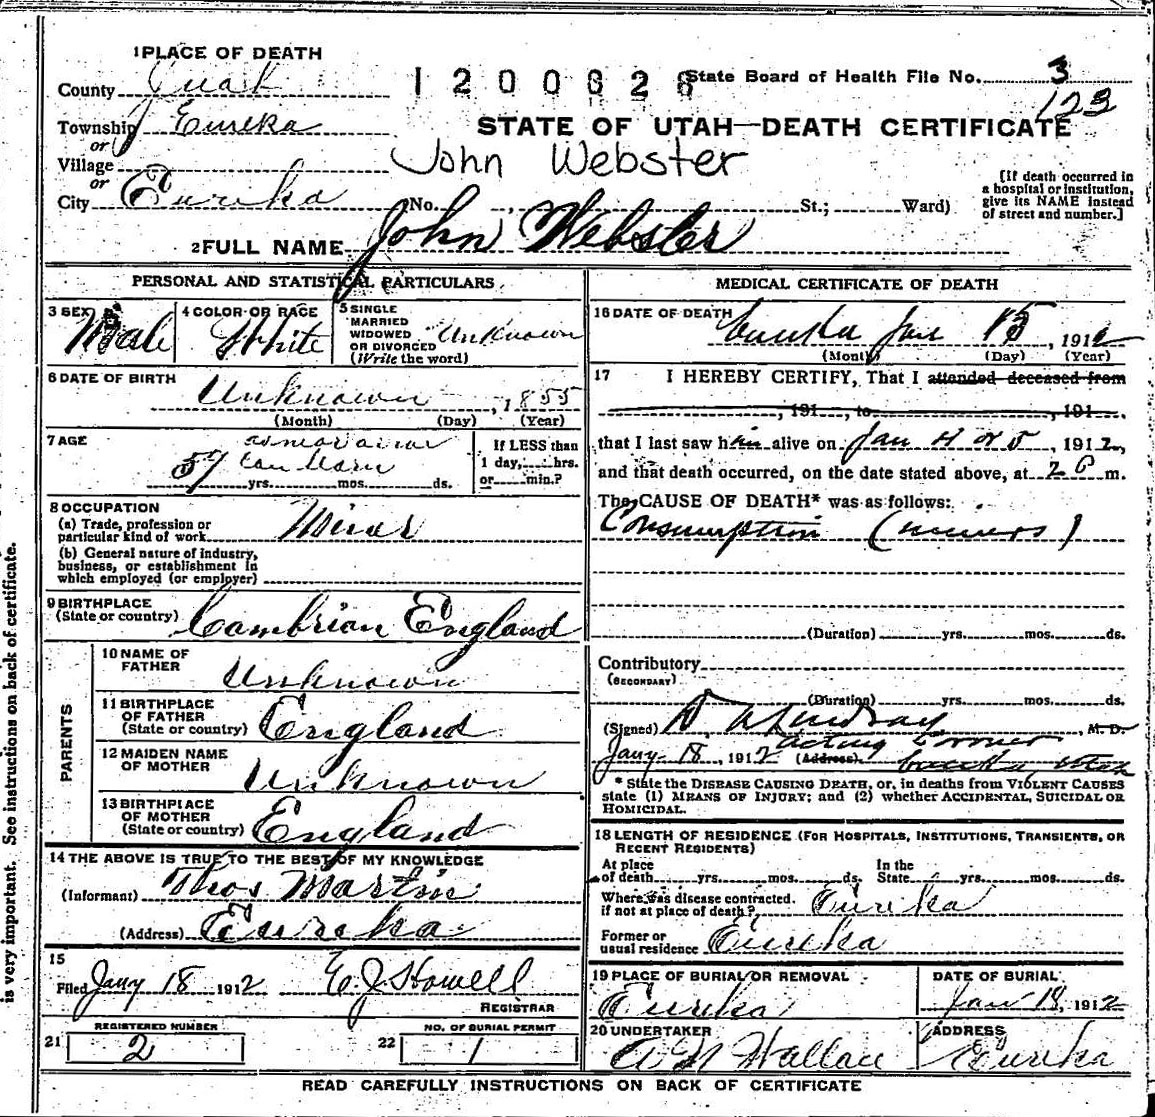 1 PLACE OF DEATH
County Juab
1200628
State Board of Health File No. 3
123
Township Eureka
or
STATE OF UTAH—DEATH CERTIFICATE
Village
John Webster
or
City Eureka (No. , St.; Ward)
[If death occurred in a hospital or institution, give its NAME instead of street and number.]
2 FULL NAME John Webster
PERSONAL AND STATISTICAL PARTICULARS
3 SEX Male
4 COLOR OR RACE White
5 SINGLE MARRIED WIDOWED OR DIVORCED (Write the word) Unknown
6 DATE OF BIRTH
Unknown , 1855
(Month) (Day) (Year)
7 AGE
as near as we
57 can learn
yrs. mos. ds.
If LESS than
1 day, hrs.
or min.?
8 OCCUPATION
(a) Trade, profession or
particular kind of work Miner
(b) General nature of industry,
business, or establishment in
which employed (or employer)
9 BIRTHPLACE
(State or country) Cambrian England
PARENTS
10 NAME OF
FATHER Unknown
11 BIRTHPLACE
OF FATHER
(State or country) England
12 MAIDEN NAME
OF MOTHER Unknown
13 BIRTHPLACE
OF MOTHER
(State or country) England
14 THE ABOVE IS TRUE TO THE BEST OF MY KNOWLEDGE
(Informant) Thos Martin
(Address) Eureka
15
Filed Jany 18 1912 E. J. Howell
REGISTRAR
21 REGISTERED NUMBER
2
22 NO. OF BURIAL PERMIT
1
MEDICAL CERTIFICATE OF DEATH
16 DATE OF DEATH
Eureka Jan 15, 1912
(Month) (Day) (Year)
17 I HEREBY CERTIFY, That I attended deceased from
, 191 , to , 191 ,
that I last saw him alive on Jan 4 or 5, 1912,
and that death occurred, on the date stated above, at 2 P m.
The CAUSE OF DEATH* was as follows:
Consumption (miners)
(Duration) yrs. mos. ds.
Contributory
(SECONDARY)
(Duration) yrs. mos. ds.
(Signed) Lindsay, M. D.
Jany 18, 1912 (Address) acting Coroner
Eureka, Utah
* State the DISEASE CAUSING DEATH, or, in deaths from VIOLENT CAUSES
state (1) MEANS OF INJURY; and (2) whether ACCIDENTAL, SUICIDAL OR
HOMICIDAL.
18 LENGTH OF RESIDENCE (FOR HOSPITALS, INSTITUTIONS, TRANSIENTS, OR
RECENT RESIDENTS)
At place
of death yrs. mos. ds.
In the
State yrs. mos. ds.
Where was disease contracted.
if not at place of death? Eureka
Former or
usual residence Eureka
19 PLACE OF BURIAL OR REMOVAL
Eureka
DATE OF BURIAL
Jan 18, 1912
20 UNDERTAKER
Wallace
ADDRESS
Eureka
READ CAREFULLY INSTRUCTIONS ON BACK OF CERTIFICATE
is very important. See instructions on back of certificate.